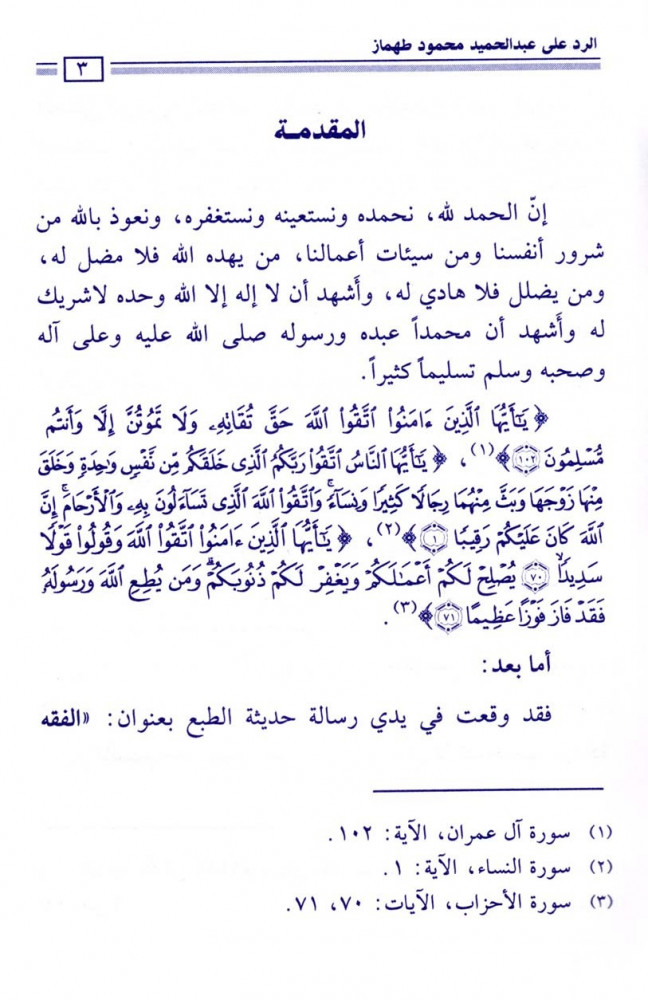 الرد على عبدالحميد محمود طهماز
٣
المقدمـة
إنّ الحمد لله، نحمده ونستعينه ونستغفره، ونعوذ بالله من
شرور أنفسنا ومن سيئات أعمالنا، من يهده الله فلا مضل له،
ومن يضلل فلا هادي له، وأشهد أن لا إله إلا الله وحده لاشريك
له وأشهد أن محمداً عبده ورسوله صلى الله عليه وعلى آله
وصحبه وسلم تسليماً كثيراً.
﴿ يَٰٓأَيُّهَا ٱلَّذِينَ ءَامَنُوا۟ ٱتَّقُوا۟ ٱللَّهَ حَقَّ تُقَاتِهِۦ وَلَا تَمُوتُنَّ إِلَّا وَأَنتُم
مُّسْلِمُونَ ١٠٢﴾(١)، ﴿ يَٰٓأَيُّهَا ٱلنَّاسُ ٱتَّقُوا۟ رَبَّكُمُ ٱلَّذِى خَلَقَكُم مِّن نَّفْسٍ وَٰحِدَةٍ وَخَلَقَ
مِنْهَا زَوْجَهَا وَبَثَّ مِنْهُمَا رِجَالًا كَثِيرًا وَنِسَآءً ۚ وَٱتَّقُوا۟ ٱللَّهَ ٱلَّذِى تَسَآءَلُونَ بِهِۦ وَٱلْأَرْحَامَ ۚ إِنَّ
ٱللَّهَ كَانَ عَلَيْكُمْ رَقِيبًا ١﴾(٢)، ﴿ يَٰٓأَيُّهَا ٱلَّذِينَ ءَامَنُوا۟ ٱتَّقُوا۟ ٱللَّهَ وَقُولُوا۟ قَوْلًا
سَدِيدًا ٧٠ يُصْلِحْ لَكُمْ أَعْمَٰلَكُمْ وَيَغْفِرْ لَكُمْ ذُنُوبَكُمْ ۗ وَمَن يُطِعِ ٱللَّهَ وَرَسُولَهُۥ
فَقَدْ فَازَ فَوْزًا عَظِيمًا ٧١﴾(٣).
أما بعد:
فقد وقعت في يدي رسالة حديثة الطبع بعنوان: «الفقه
(١) سورة آل عمران، الآية: ١٠٢.
(٢) سورة النساء، الآية: ١.
(٣) سورة الأحزاب، الآيات: ٧٠، ٧١.